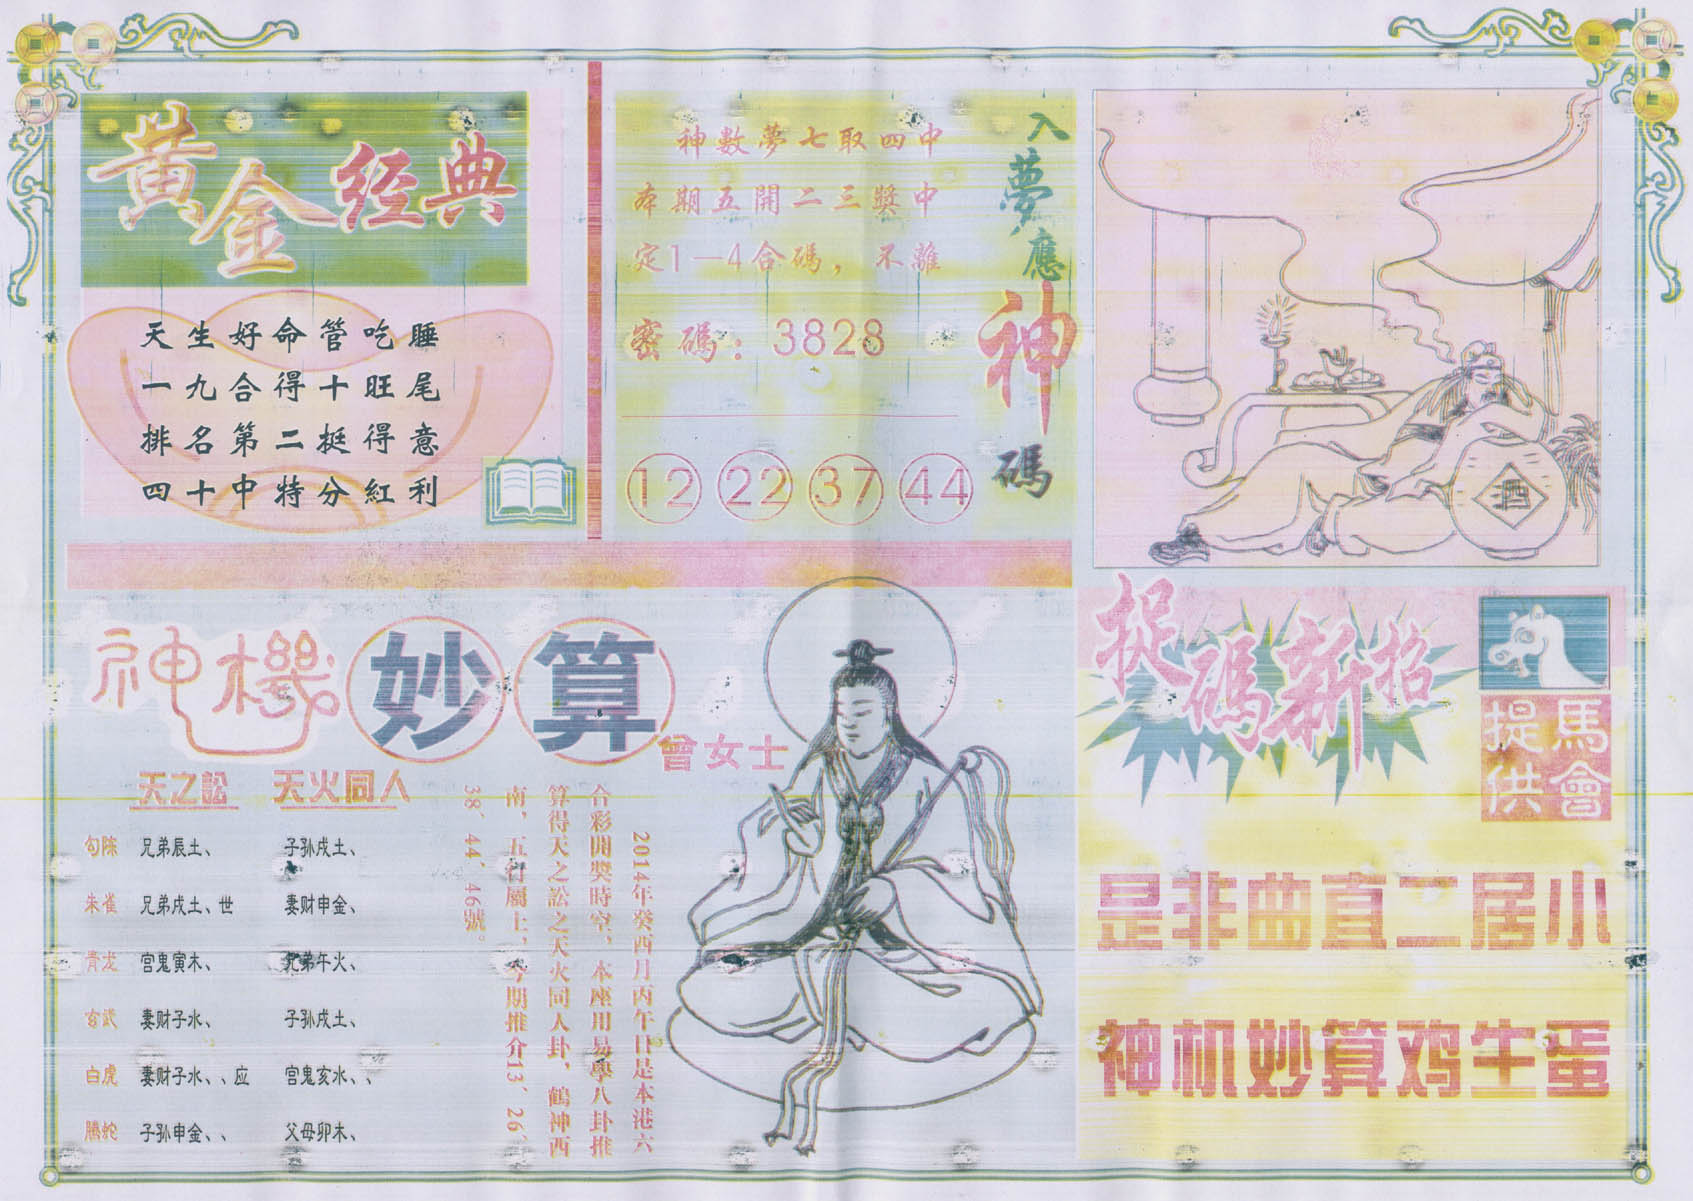 黃金经典
天生好命管吃睡
一九合得十旺尾
排名第二挺得意
四十中特分紅利
神數夢七取四中
本期五開二三獎中
定1—4合碼，不離
密碼：3828
12 22 37 44
入夢應神碼
酒
神機妙算
曾女士
天之訟 天火同人
勾陈 兄弟辰土、 子孙戌土、
朱雀 兄弟戌土、世 妻财申金、
青龙 官鬼寅木、 兄弟午火、
玄武 妻财子水、 子孙戌土、
白虎 妻财子水、、应 官鬼亥水、、
腾蛇 子孙申金、、 父母卯木、
2014年癸酉月丙午日是本港六
合彩開獎時空，本座用易學八卦推
算得天之訟之天火同人卦，鶴神西
南，五行屬土，今期推介13、26、
38、44、46號。
捉碼新招
馬會提供
是非曲直二居小
神机妙算鸡生蛋